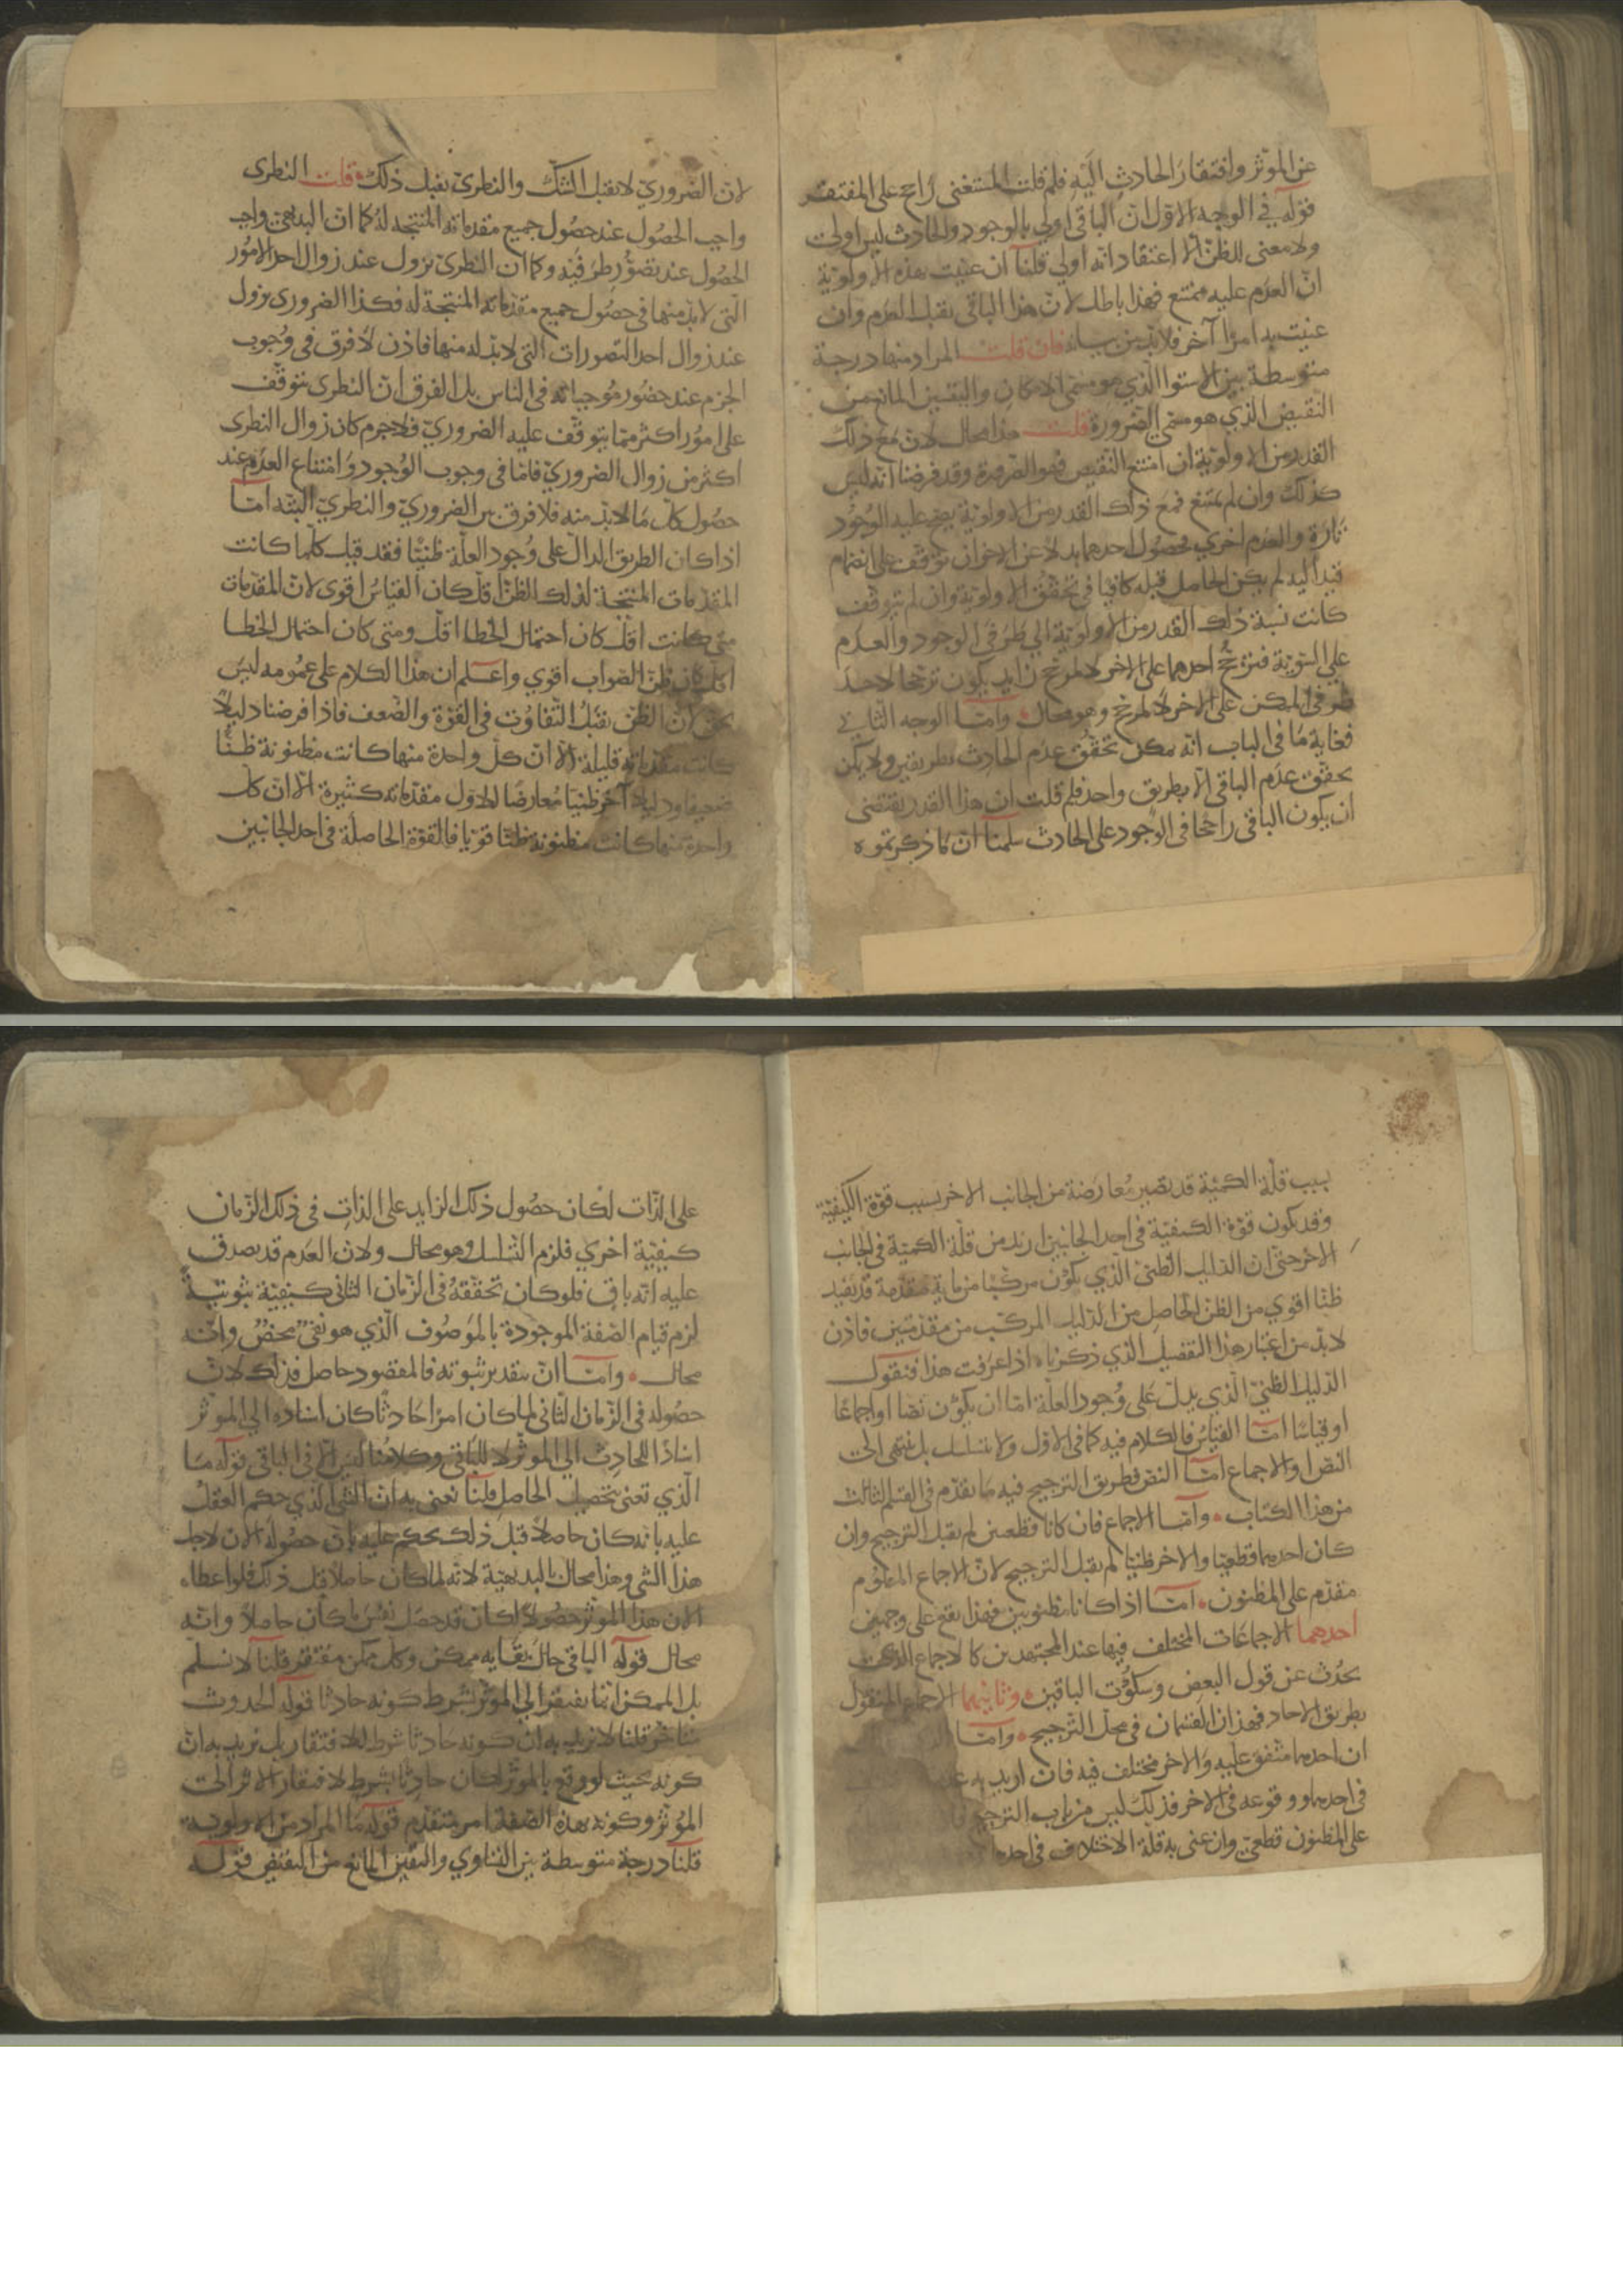 عن المؤثر وافتقار الحادث اليه فلم قلت المستغنى راجح على المفتقر
قوله في الوجه الاول ان الباقى اولى بالوجود والحادث ليس اولى
ولا معنى للظن الا اعتقاد انه اولى قلنا ان عنيت بهذه الاولوية
ان العدم عليه ممتنع فهذا باطل لان هذا الباقى يقبل العدم وان
عنيت به امرا آخر فلا بد من بيانه فان قلت المراد منها درجة
متوسطة بين الاستوا الذي هو مسمى الامكان واليقين المانع من
النقيض الذي هو مسمى الضرورة قلت هذا محال لان مع ذلك
القدر من الاولوية ان امتنع النقيض فهو الضرورة وقد فرضنا انه ليس
كذلك وان لم يمتنع فمع ذلك القدر من الاولوية يصح عليه الوجود
تارة والعدم اخرى فحصول احدهما بدلا عن الاخر ان توقف على انضمام
قيد اليه لم يكن الحاصل قبله كافيا في تحقق الاولوية وان لم يتوقف
كانت نسبة ذلك القدر من الاولوية الى طرفى الوجود والعدم
على السوية فترجح احدهما على الاخر لا لمرجح زايد يكون ترجحا لاحد
طرفى الممكن على الاخر لا لمرجح وهو محال وامـا الوجه الثانى
فغاية ما فى الباب انه يمكن تحقق عدم الحادث بطريقين ولا يمكن
تحقق عدم الباقى الا بطريق واحد فلم قلت ان هذا القدر يقتضى
ان يكون الباقى راجحا فى الوجود على الحادث سلمنا ان ما ذكرتموه
لان الضرورى لا يقبل الشك والنظرى يقبل ذلك قلت النظرى
واجب الحصول عند حصول جميع مقدماته المنتجة له كما ان البديهى واجب
الحصول عند تصور طرفيه وكما ان النظرى يزول عند زوال احد الامور
التى لا بد منها فى حصول جميع مقدماته المنتجة له فكذا الضرورى يزول
عند زوال احد التصورات التى لا بد له منها فاذن لا فرق فى وجوب
الجزم عند حضور موجباته فى الناس بل الفرق ان النظرى يتوقف
على امور اكثر مما يتوقف عليه الضرورى فلا جرم كان زوال النظرى
اكثر من زوال الضرورى فاما فى وجوب الوجود وامتناع العدم عند
حصول كل ما لا بد منه فلا فرق بين الضرورى والنظرى البتة امـا
اذا كان الطريق الدال على وجود العلة ظنيا فقد قيل كلما كانت
المقدمات المنتجة لذلك الظن اقل كان القياس اقوى لان المقدمات
متى كانت اقل كان احتمال الخطا اقل ومتى كان احتمال الخطا
اقل كان ظن الصواب اقوى واعلم ان هذا الكلام على عمومه ليس
بحق لان الظن يقبل التفاوت فى القوة والضعف فاذا فرضنا دليلا
كانت مقدماته قليلة الا ان كل واحدة منها كانت مظنونة ظنا
ضعيفا ودليلا آخر ظنيا معارضا للاول مقدماته كثيرة الا ان كل
واحدة منها كانت مظنونة ظنا قويا فالقوة الحاصلة فى احد الجانبين
بسبب قلة الكمية قد تصير معارضة من الجانب الاخر بسبب قوة الكيفية
وقد يكون قوة الكيفية فى احد الجانبين ازيد من قلة الكمية فى الجانب
الاخر حتى ان الدليل الظنى الذي يكون مركبا من ماية مقدمة قد يفيد
ظنا اقوى من الظن الحاصل من الدليل المركب من مقدمتين فاذن
لا بد من اعتبار هذا التفصيل الذي ذكرناه اذا عرفت هذا فنقول
الدليل الظنى الذي يدل على وجود العلة اما ان يكون نصا او اجماعا
او قياسا امـا القياس فالكلام فيه كما فى الاول ولا يتسلسل بل ينتهى الى
النص او الاجماع امـا النص فطريق الترجيح فيه ما تقدم فى القسم الثالث
من هذا الكتاب وامـا الاجماع فان كانا قطعيين لم يقبل الترجيح وان
كان احدهما قطعيا والاخر ظنيا لم يقبل الترجيح لان الاجماع المعلوم
مقدم على المظنون امـا اذا كانا مظنونين فهذا يقع على وجهين
احدهما الاجماعات المختلف فيها عند المجتهدين كالاجماع الذى
يحدث عن قول البعض وسكوت الباقين وثانيهما الاجماع المنقول
بطريق الاحاد فهذان القسمان فى محل الترجيح وامـا
ان احدهما متفق عليه والاخر مختلف فيه فان اريد به
فى احدهما ووقوعه فى الاخر فذلك ليس من باب الترجيح
على المظنون قطعى وان عنى به قلة الاختلاف فى احدهما
على الذات لكان حصول ذلك الزايد على الذات فى ذلك الزمان
كيفية اخرى فلزم التسلسل وهو محال ولان العدم قد يصدق
عليه انه باق فلو كان تحققه فى الزمان الثانى كيفية ثبوتية
لزم قيام الصفة الموجودة بالموصوف الذي هو نفى محض وانه
محال وامـا ان بتقدير ثبوته فالمقصود حاصل فذلك لان
حصوله فى الزمان الثانى لما كان امرا حادثا كان اسناده الى المؤثر
اسنادا للحادث الى المؤثر لا للباقى وكلامنا ليس الا فى الباقى قوله ما
الذي تعنى بتحصيل الحاصل قلنا نعنى به ان الشى الذي حكم العقل
عليه بانه كان حاصلا قبل ذلك يحكم عليه بان حصوله الان لاجل
هذا الشى وهذا محال بالبديهية لانه لما كان حاصلا قبل ذلك فلو اعطاه
الان هذا المؤثر حصولا لكان قد حصل نفس ما كان حاصلا وانه
محال قوله الباقى حال بقايه ممكن وكل ممكن مفتقر قلنا لا نسلم
بل الممكن انما يفتقر الى المؤثر بشرط كونه حادثا قوله الحدوث
متاخر قلنا لا نريد به ان كونه حادثا شرط للافتقار بل نريد به ان
كونه بحيث لو وقع بالمؤثر لكان حادثا شرط لافتقار الاثر الى
المؤثر وكونه بهذه الصفة امر متقدم قوله ما المراد من الاولوية
قلنا درجة متوسطة بين التساوى واليقين المانع من النقيض قوله